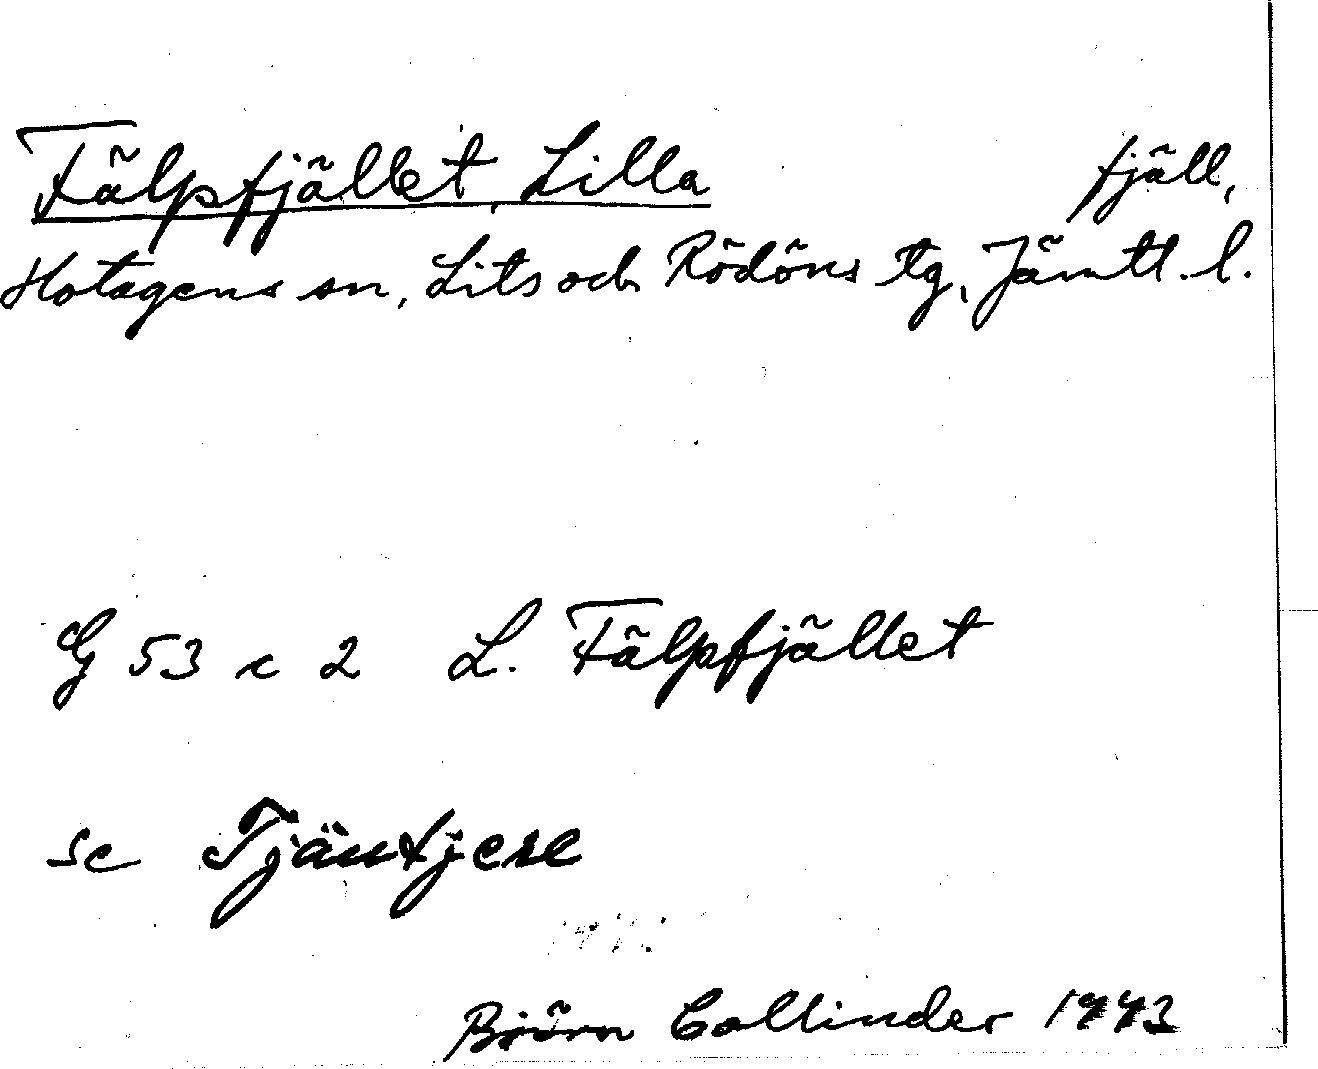 Fälpfjället, Lilla fjäll,
Hotagens sn, Lits och Rödöns tg, Jämtl. l.
G 53 c 2 L. Fälpfjället
se Tjäutjere
Björn Collinder 1943